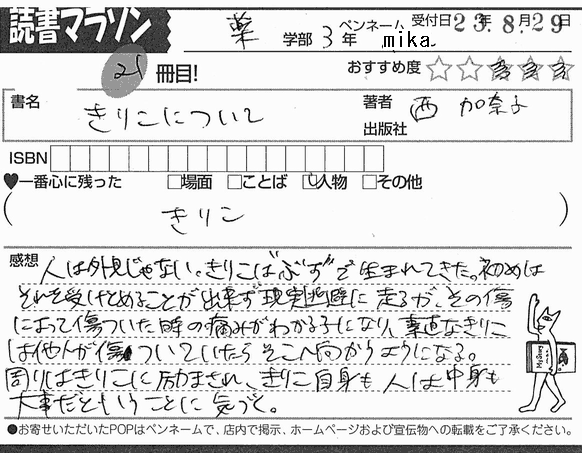 読書マラソン 薬 学部 3年 ペンネーム mika 受付日 23年 8月29日
21 冊目! おすすめ度 ☆☆☆☆☆
書名 きりこについて 著者 西 加奈子
出版社
ISBN
♥一番心に残った □場面 □ことば □人物 □その他
( きりこ )
感想 人は外見じゃない。きりこは“ぶす”で生まれてきた。初めは
それを受けとめることが出来ず現実逃避に走るが、その傷
によって傷ついた時の痛みがわかる子になり、素直なきりこ
は他人が傷ついていたらそこへ向かうようになる。
周りはきりこに励まされ、きりこ自身も人は中身も
大事だということに気づく。
●お寄せいただいたPOPはペンネームで、店内で掲示、ホームページおよび宣伝物への転載をご了承ください。